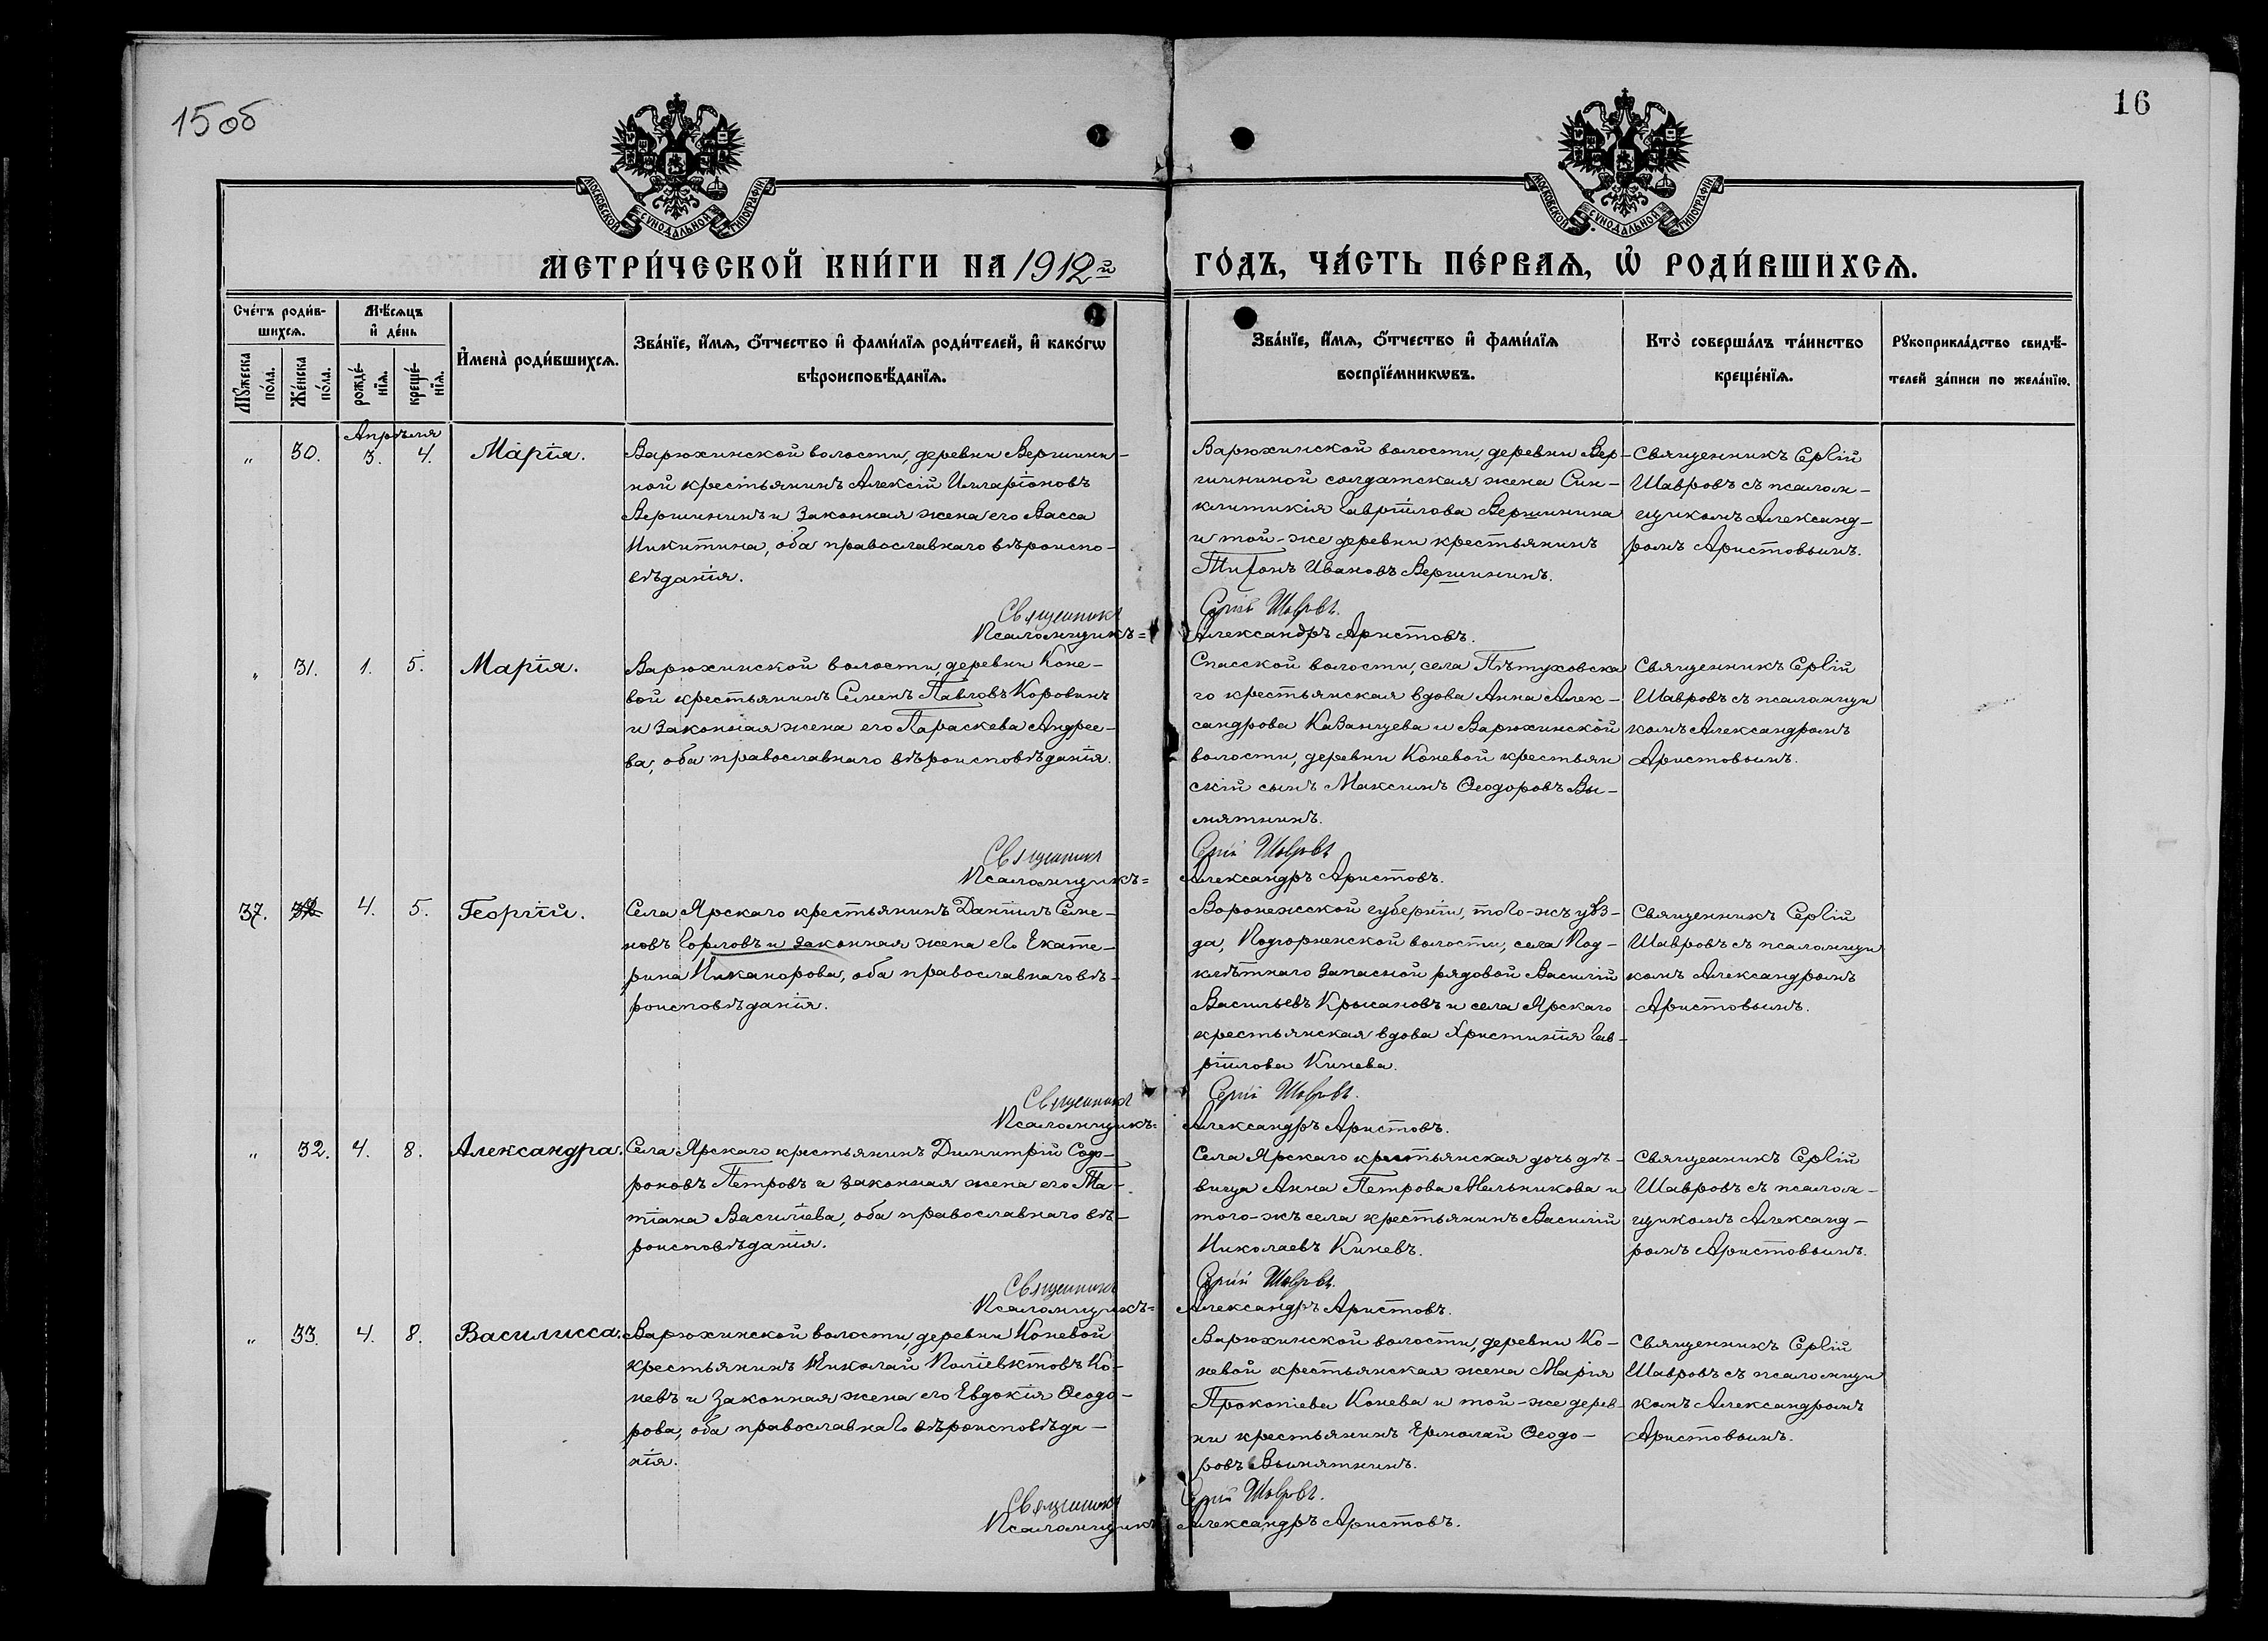 15 об
16
МОСКОВСКОЙ СѴНОДАЛЬНОЙ ТИПОГРАФІИ
МОСКОВСКОЙ СѴНОДАЛЬНОЙ ТИПОГРАФІИ
МЕТРИ́ЧЕСКОЙ КНИ́ГИ НА 1912й
ГО́ДЪ, ЧА́СТЬ ПЕ́РВАѦ, Ѡ҆ РОДИ́ВШИХСѦ.
Сче́тъ роди́в-
шихсѧ.
Мꙋ́жеска по́ла.
Же́нска по́ла.
Мѣ́сѧцъ
и҆ де́нь
рожде́-нїѧ.
креще́-нїѧ.
И҆мена̀ роди́вшихсѧ.
Зва́нїе, и҆́мѧ, ѻ҆́тчество и҆ фами́лїѧ роди́телей, и҆ како́гѡ
вѣроисповѣ́данїѧ.
Зва́нїе, и҆́мѧ, ѻ҆́тчество и҆ фами́лїѧ
воспрїе́мникѡвъ.
Кто̀ соверша́лъ та́инство
креще́нїѧ.
Рꙋкоприкла́дство свидѣ́-
телей за́писи по жела́нїю.
Апрѣля
„ 30. 3. 4. Марія.
Варюхинской волости, деревни Вершини-
ной крестьянинъ Алексій Илларіоновъ
Вершининъ и законная жена его Васса
Никитина, оба православнаго вѣроиспо-
вѣданія.
Варюхинской волости, деревни Вер-
шининой солдатская жена Син-
клитикія Гавріилова Вершинина
и той-же деревни крестьянинъ
Тихонъ Ивановъ Вершининъ.
Священникъ Сергій
Шавровъ съ псалом-
щикомъ Александ-
ромъ Аристовымъ.
Священникъ Сергій Шавровъ.
Псаломщикъ= Александръ Аристовъ.
„ 31. 1. 5. Марія.
Варюхинской волости, деревни Коне-
вой крестьянинъ Семенъ Павловъ Коровинъ
и законная жена его Параскева Андрее-
ва, оба православнаго вѣроисповѣданія.
Спасской волости, села Пѣтуховска
го крестьянская вдова Анна Алек-
сандрова Казанцева и Варюхинской
волости, деревни Коневой крестьян
скій сынъ Максимъ Ѳеодоровъ Вы-
мятнинъ.
Священникъ Сергій
Шавровъ съ псаломщи
комъ Александромъ
Аристовымъ.
Священникъ Сергій Шавровъ
Псаломщикъ= Александръ Аристовъ.
37. 32 4. 5. Георгій.
Села Ярскаго крестьянинъ Даніилъ Симе-
новъ Горловъ и законная жена его Екате-
рина Никанорова, оба православнаго вѣ-
роисповѣданія.
Воронежской губерніи, того-жъ уѣз-
да, Подгорненской волости, села Под-
клѣтнаго запасной рядовой Василій
Васильевъ Крысановъ и села Ярскаго
крестьянская вдова Христинія Гав-
ріилова Кинева.
Священникъ Сергій
Шавровъ съ псаломщи
комъ Александромъ
Аристовымъ.
Священникъ Сергій Шавровъ.
Псаломщикъ= Александръ Аристовъ.
„ 32. 4. 8. Александра.
Села Ярскаго крестьянинъ Димитрій Содо-
роновъ Петровъ и законная жена его Та-
тіана Василіева, оба православнаго вѣ-
роисповѣданія.
Села Ярскаго крестьянская дочь дѣ-
вица Анна Петрова Мельникова и
того-жъ села крестьянинъ Василій
Николаевъ Киневъ.
Священникъ Сергій
Шавровъ съ псалом-
щикомъ Александ-
ромъ Аристовымъ.
Священникъ Сергій Шавровъ.
Псаломщикъ= Александръ Аристовъ.
„ 33. 4. 8. Василисса.
Варюхинской волости, деревни Коневой
крестьянинъ Николай Поліевктовъ Ко-
невъ и законная жена его Евдокія Ѳеодо-
рова, оба православнаго вѣроисповѣда-
нія.
Варюхинской волости, деревни Ко-
невой крестьянская жена Марія
Прокопіева Конева и той-же дерев-
ни крестьянинъ Ермолай Ѳеодо-
ровъ Вымятнинъ.
Священникъ Сергій
Шавровъ съ псаломщи
комъ Александромъ
Аристовымъ.
Священникъ Сергій Шавровъ.
Псаломщикъ Александръ Аристовъ.